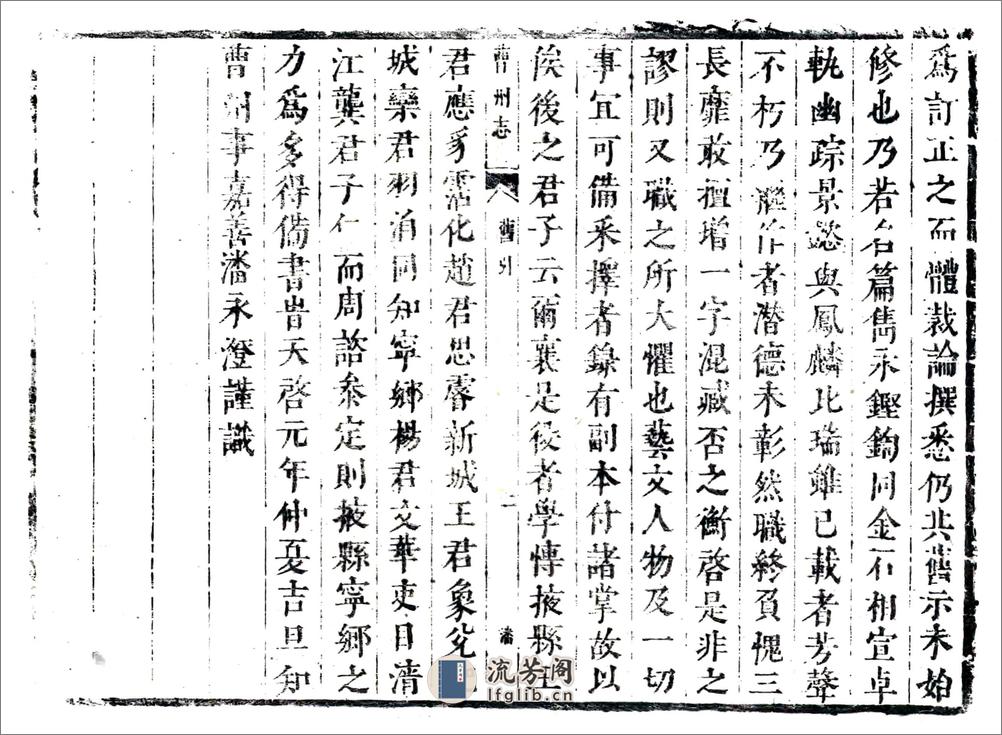 爲訂正之而體裁論撰悉仍其舊示未始
修也乃若名篇雋永鏗鍧同金石相宣卓
軌幽踪景懿與鳳麟比瑞雖已載者芳聲
不朽乃繼作者潜德未彰然職終負愧三
長靡敢擅增一字混臧否之衡啓是非之
謬則又職之所大懼也藝文人物及一切
事宜可備采擇者錄有副本付諸掌故以
俟後之君子云爾襄是役者學博掖縣
曹州志
舊引
二
潘
君應豸霑化趙君思睿新城王君象兊
城欒君羽泊同知寧鄉楊君文華吏目清
江龔君子仁而周諮叅定則掖縣寧鄉之
力爲多得備書旹天啓元年仲夏吉旦知
曹州事嘉善潘永澄謹識
流芳阁
lfglib.cn